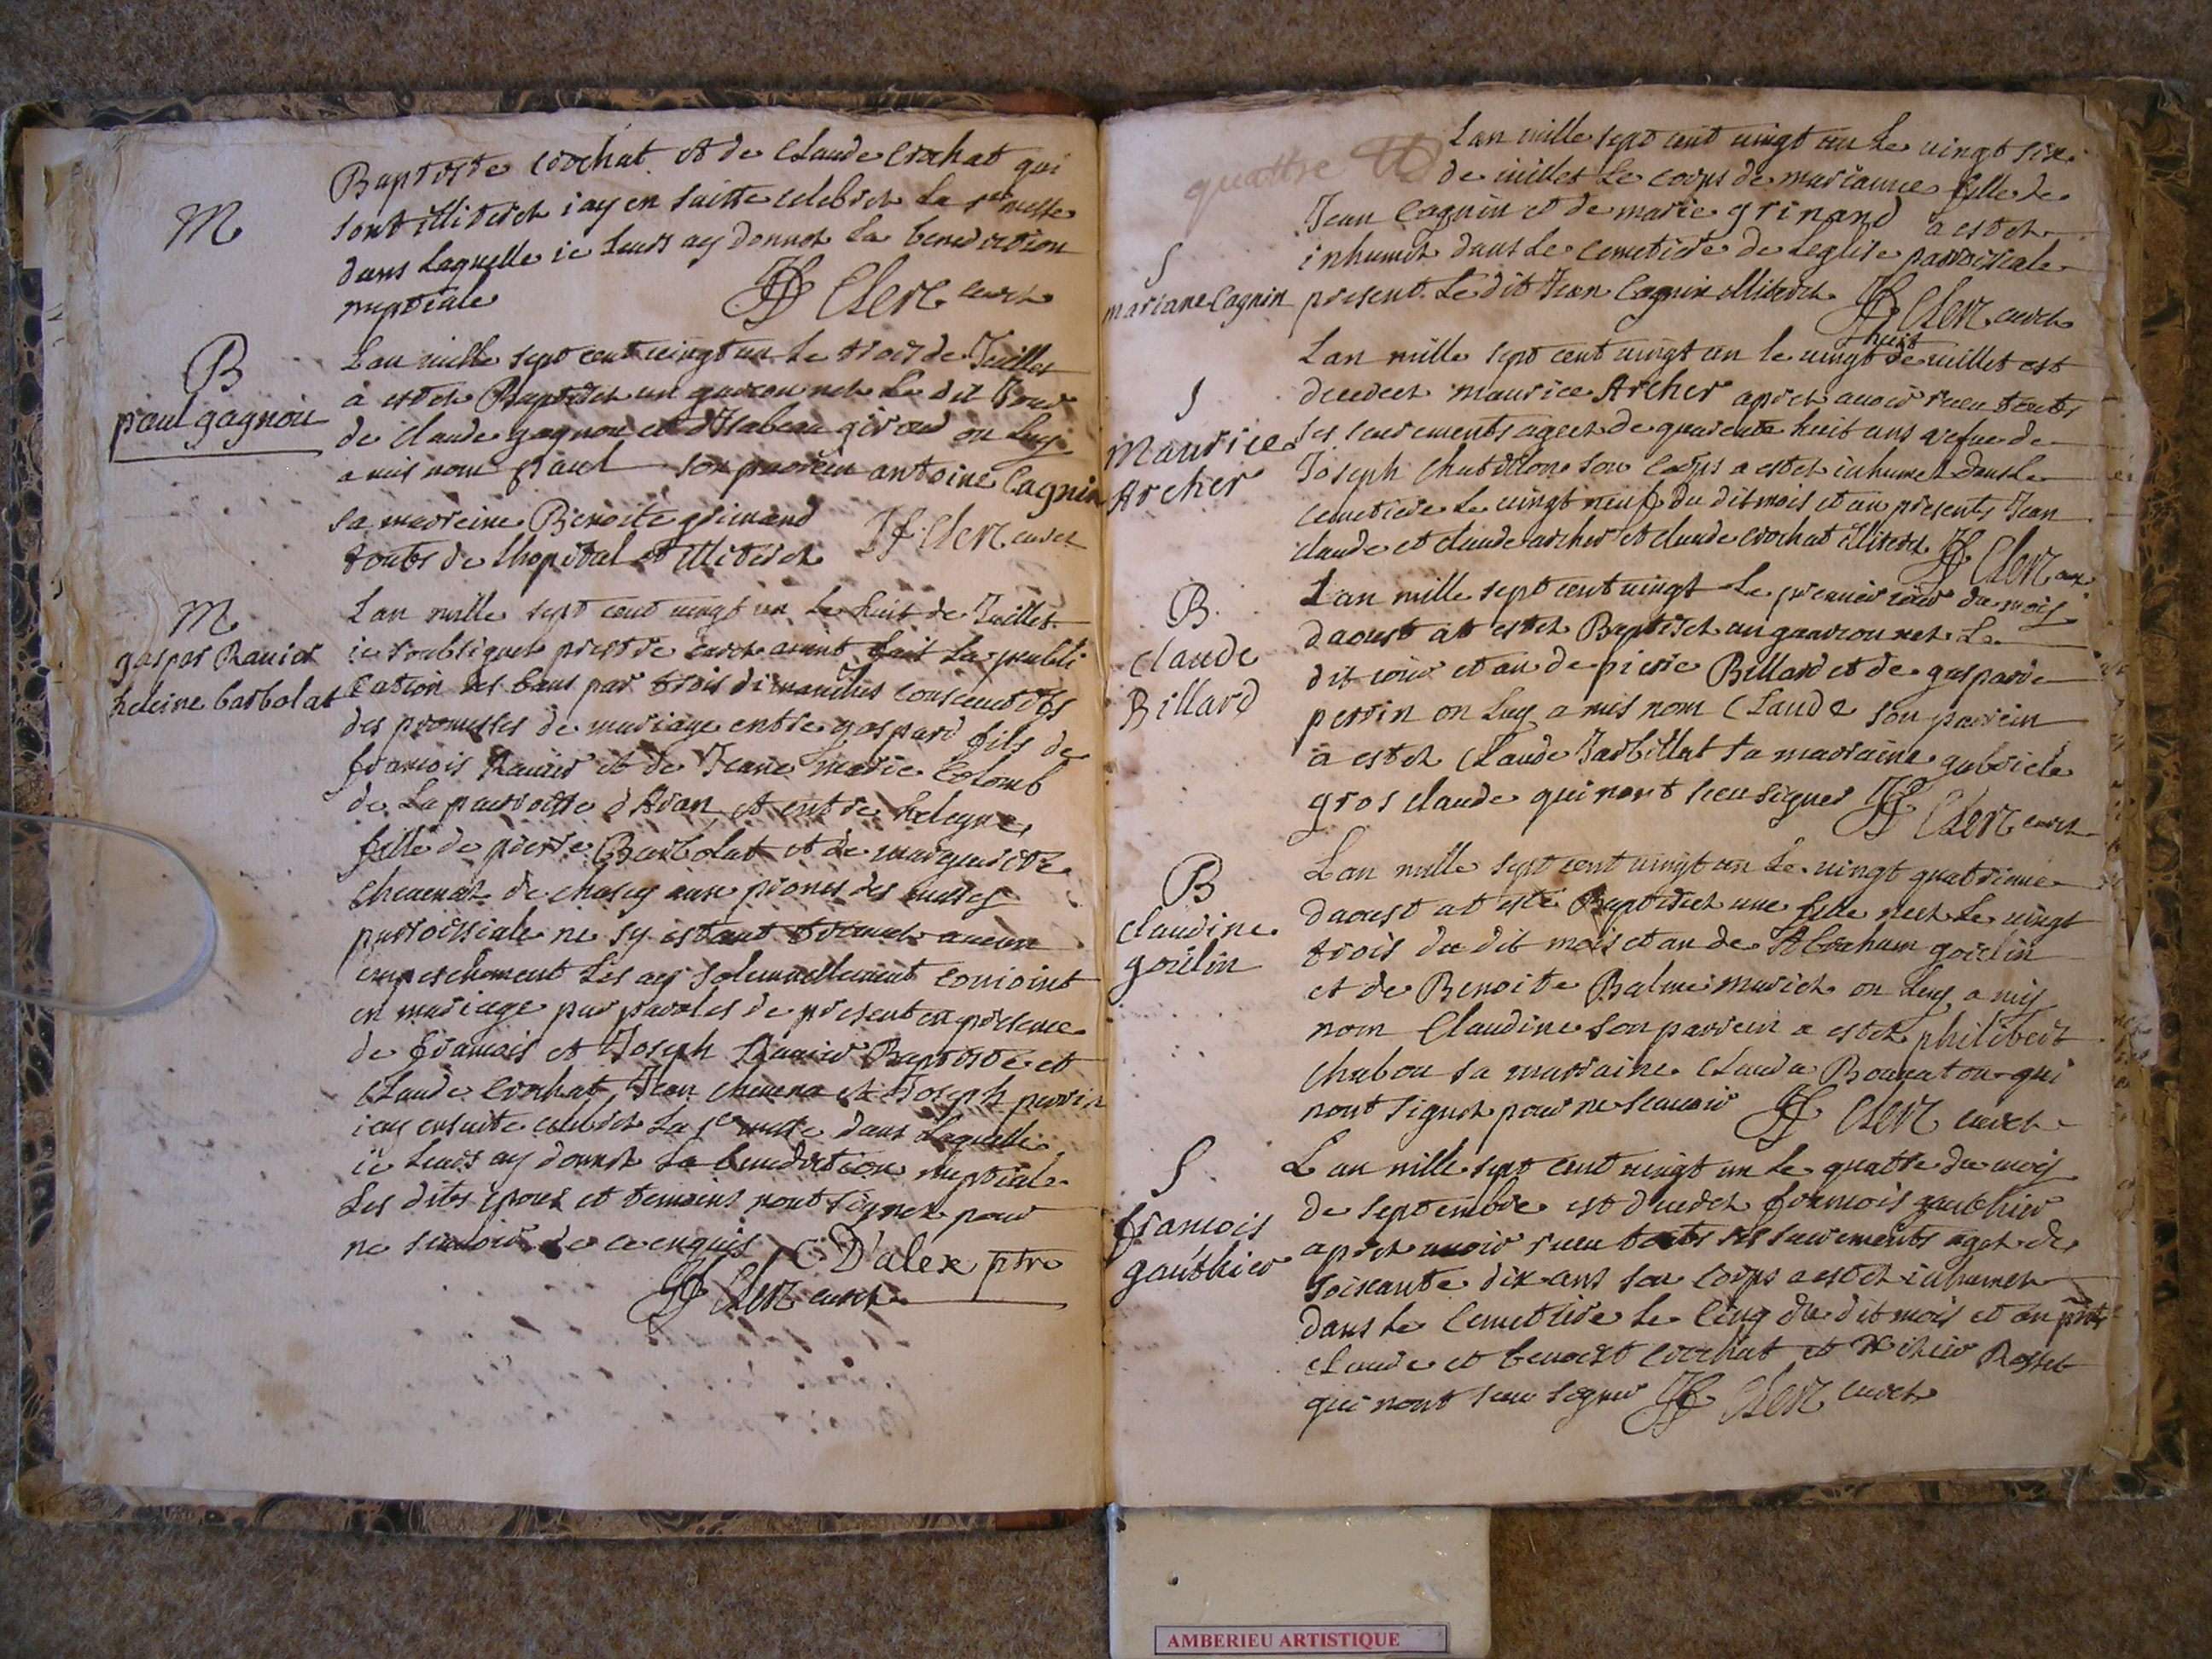 Baptiste Crochat et de Claude Crochat qui
M
sont illiteret iay en suitte celebret la ste messe
dans laquelle ie leurs ay donnet la benediction
nuptiale
JF Clerc curet
B
paul gagnou
Lan mille sept cent vingt un le trois de Juillet
a estet Baptiset un garcon net le dit Jour
de Claude gagnou et d'Isabeau giroud on luy
a mis nom paul son parrein antoine Cagnin
sa marreine Benoite grimand
JF Clerc curet
touts de lhopital et illiteret
M
gaspar Ravier
heleine barbolat
Lan mille sept cent vingt un le huit de Juillet
ie soubsignet prestre curet aiant fait la publi
cation des bans par trois dimanches consecutifs
des promesses de mariage entre gaspard fils de
francois Ravier et de Jeane marie Colomb
de la parroisse d'Aran et entre helegne
fille de pierre Barbolat et de marguerite
chevenat de chasey aux prones des messes
parroissiale ne sy estant trouvet aucun
empeschement les ay solennellement conioint
en mariage par paroles de present en presence
de francois et Joseph Ravier Baptiste et
Claude Crochat Jean chevena et Joseph perrin
iay ensuite celebret la ste messe dans laquelle
ie leurs ay donnet la benediction nuptiale
les dits epoux et temoins nont signet pour
ne scavoir de ce enquis
C. D'alex ptre
JF Clerc curet
quattre
Lan mille sept cent vingt un le vingt six
de iuillet le corps de marianne fille de
Jean Cagnin et de marie grinand a estet
S
mariane Cagnin
inhumet dans le cemetiere de leglise parroissiale
present le dit Jean Cagnin illiteret JF Clerc curet
S
Maurice
Archer
huit
Lan mille sept cent vingt un le vingt de iuillet est
decedeet maurice Archer apret avoir receu touts
ses sacrements ageet de quarente huit ans vefue de
Joseph Chatillon son corps a estet inhumet dans le
cemetiere le vingt neuf du dit mois et an presents Jean
claude et claude archer et claude crochat illiteret JF Clerc cur
B.
Claude
Billard
Lan mille sept cent vingt le premier iour du mois
daoust at estet Baptiset un garcon net le
dit iour et an de pierre Billard et de gasparde
perrin on luy a mis nom Claude son parrein
a estet Claude Jarbillat sa marraine gabriele
gros claude qui nont sceu signer JF Clerc curet
B
claudine
goielin
Lan mille sept cent vingt un le vingt quatrieme
daoust at este Baptiseet une fille neet le vingt
trois du dit mois et an de Abraham goielin
et de Benoite Balme mariet on luy a mis
nom Claudine son parrein a estet philibert
Chabou sa marraine Clauda Bonnaton qui
nont signet pour ne scavoir JF Clerc curet
S
francois
gauthier
Lan mille sept cent vingt un le quatre du mois
de septembre est decedet francois gauthier
apret avoir receu touts ses sacrements aget de
soixante dix ans son corps a estet inhumet
dans le Cemetiere le Cinq du dit mois et an pnts
claude et benoist Crochat et Rosset
qui nont sceu signer JF Clerc curet
AMBERIEU ARTISTIQUE